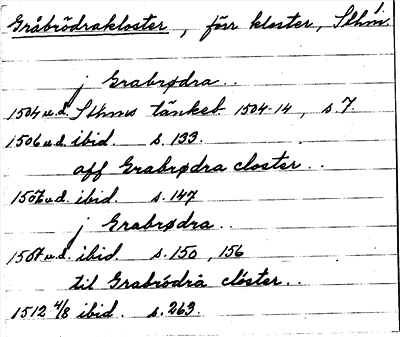 Gråbrödrakloster, förr kloster, Sthm.
j Grabrødra..
1504 u.d. Sthms tänkeb. 1504-14, s. 7.
1506 u.d. ibid. s. 133.
aff Grabrødra closter..
1507 u.d. ibid. s. 147
j Grabrødra..
1507 u.d. ibid. s. 150, 156
til Grabrödra clöster..
1512 4/8 ibid. s. 263.